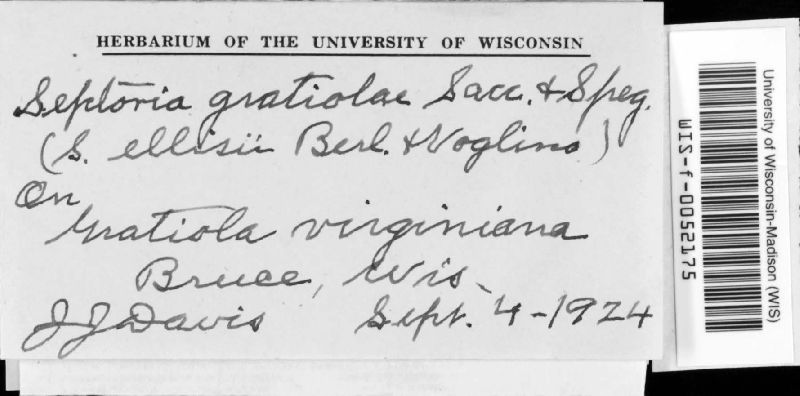 HERBARIUM OF THE UNIVERSITY OF WISCONSIN
Septoria gratiolae Sacc. & Speg.
(S. ellisii Berl. & Voglino)
On
Gratiola virginiana
Bruce, Wis.
J J Davis Sept. 4-1924
University of Wisconsin-Madison (WIS)
WIS-f-0052175